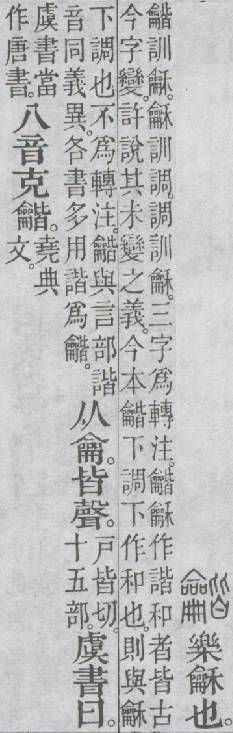 龤 樂龢也。
龤訓龢。龢訓調。調訓龢。三字爲轉注。龤龢作諧和者皆古
今字變。許說其未變之義。今本龤下調下作和也。則與龢
下調也不爲轉注。龤與言部諧
音同義異。各書多用諧爲龤。
从龠。皆聲。
戶皆切。
十五部。
虞書曰。
虞書當
作唐書。
八音克龤。
堯典
文。